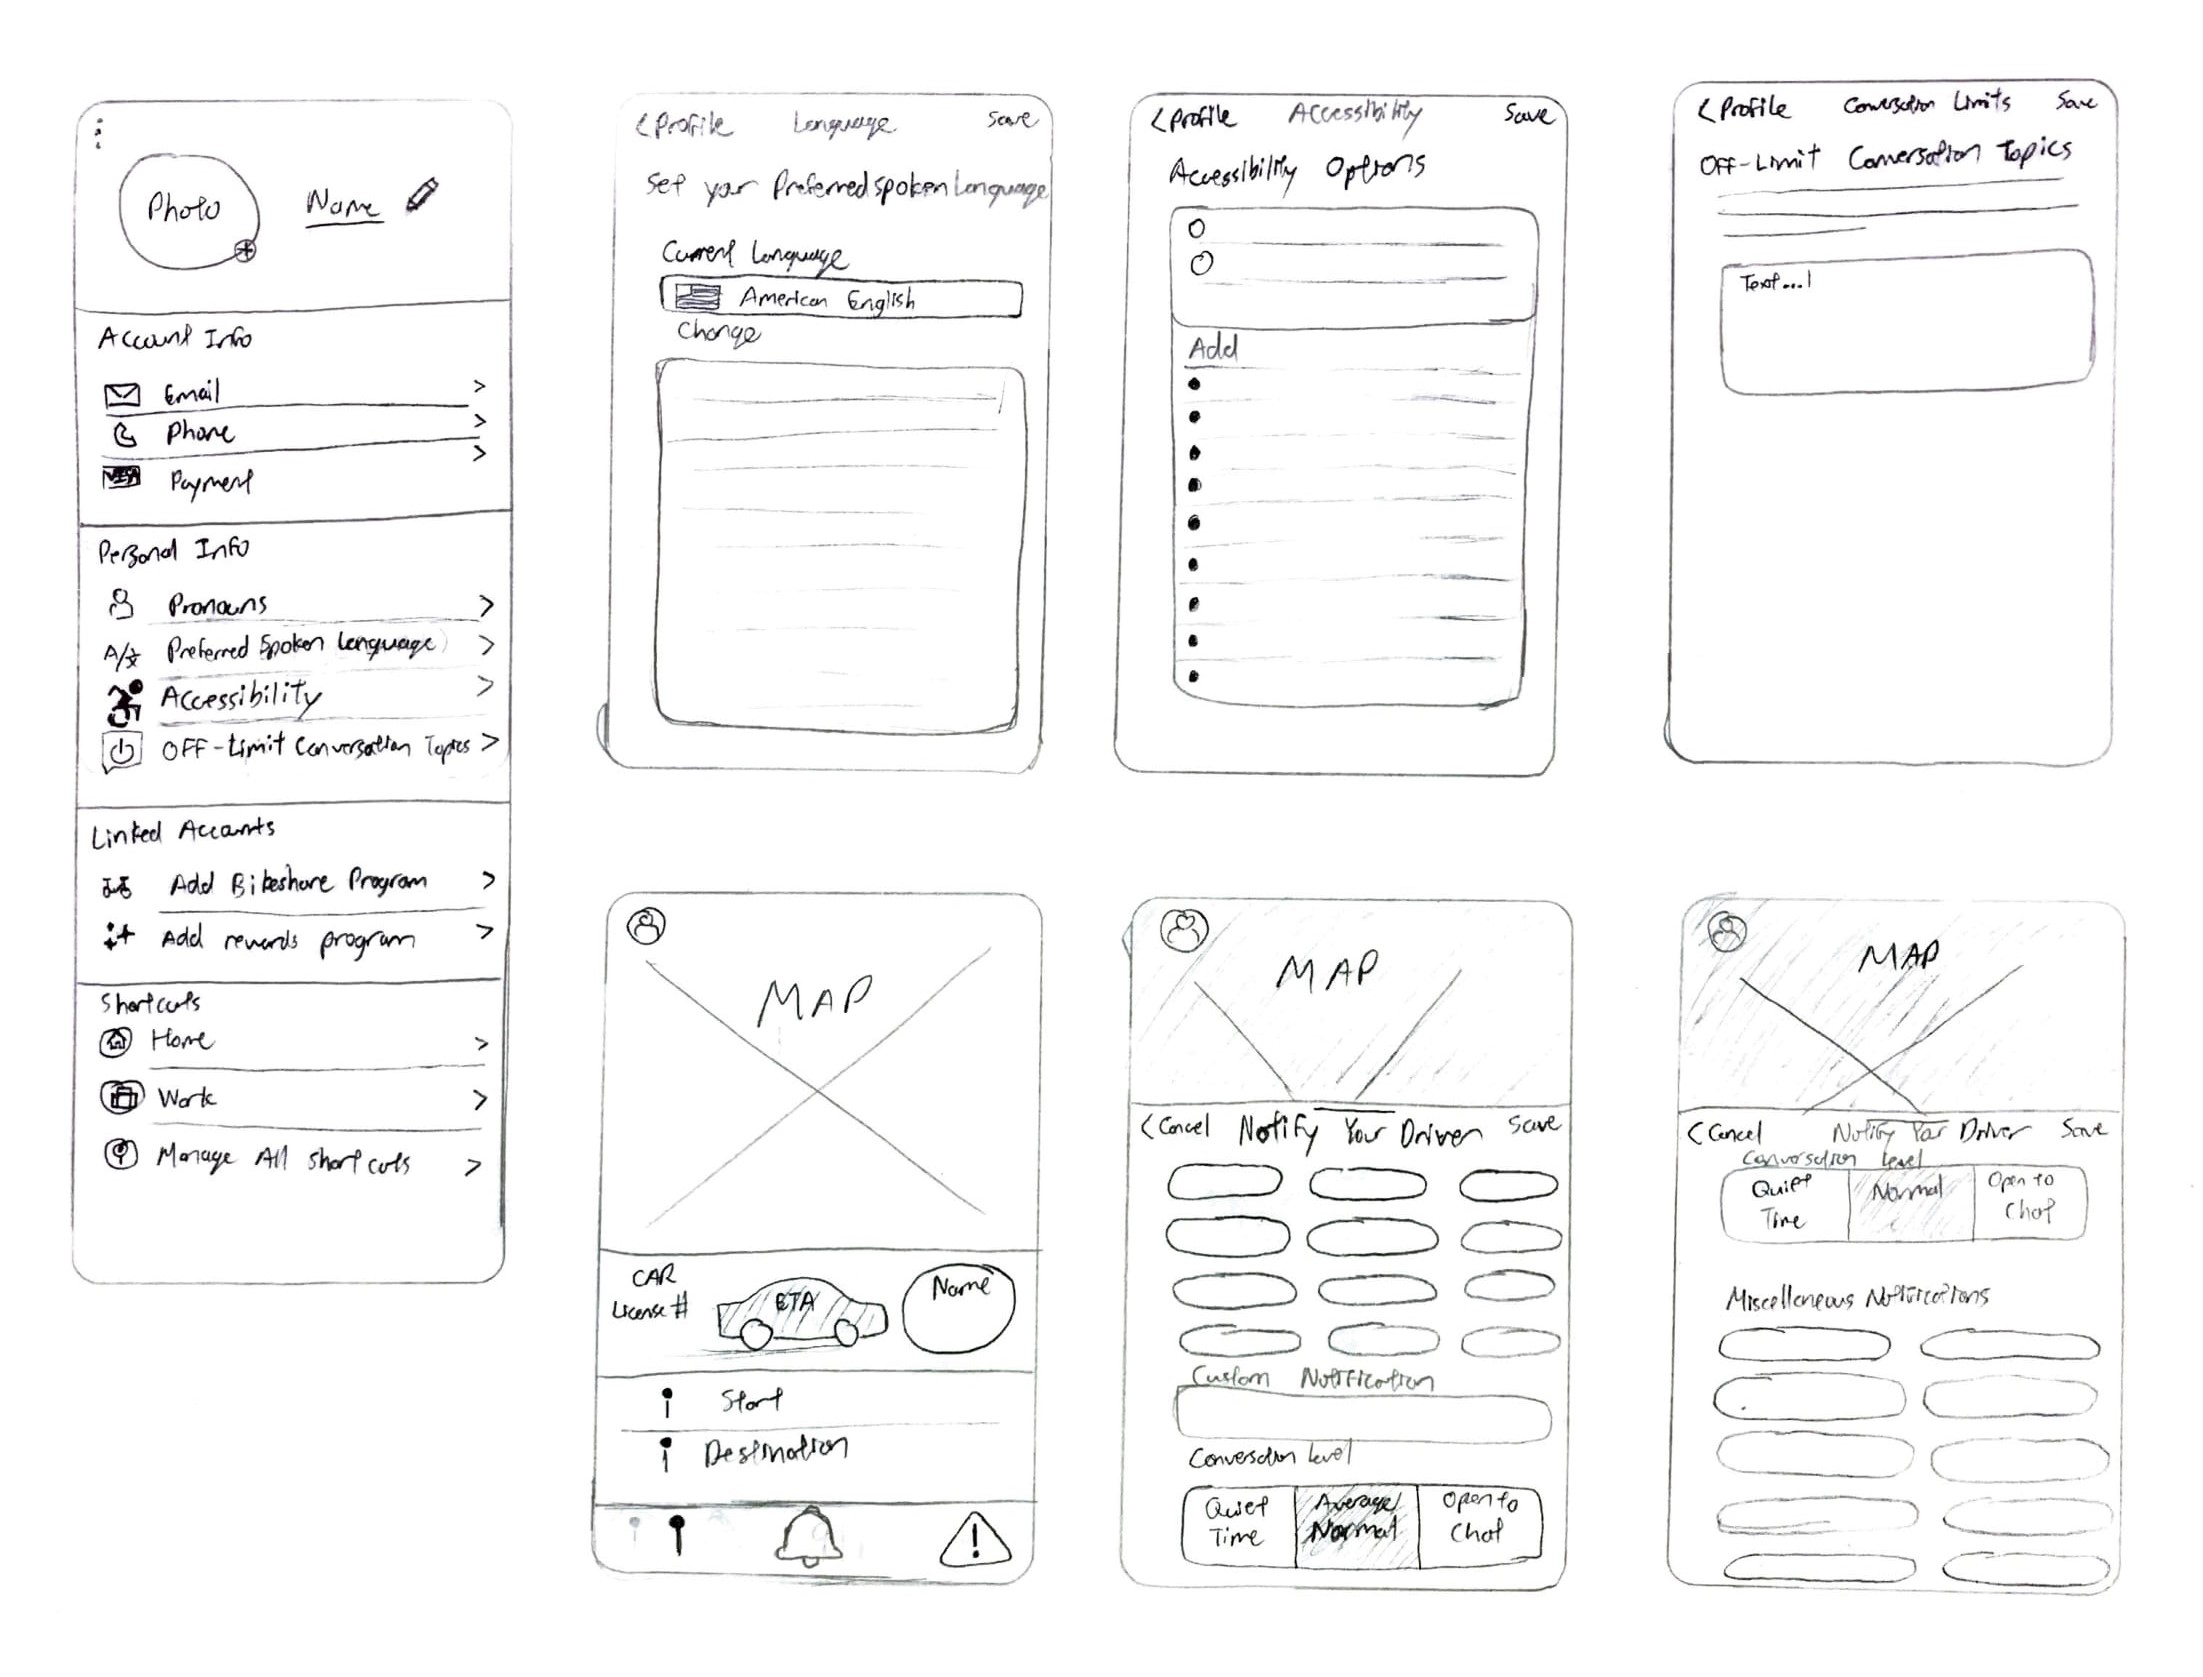 Photo
Name
Account Info
Email
Phone
VISA
Payment
Personal Info
Pronouns
A/文 Preferred Spoken Language
Accessibility
OFF-Limit Conversation Topics
Linked Accounts
Add Bikeshare Program
Add rewards program
Shortcuts
Home
Work
Manage All Shortcuts
< Profile Language Save
Set your Preferred Spoken Language
Current Language
American English
Change
< Profile Accessibility Save
Accessibility Options
Add
< Profile Conversation Limits Save
OFF-Limit Conversation Topics
Text...|
MAP
CAR
License #
ETA
Name
Start
Destination
!
MAP
< Cancel Notify Your Driver Save
Custom Notification
Conversation Level
Quiet Time
Average/ Normal
Open to Chat
MAP
< Cancel Notify Your Driver Save
Conversation Level
Quiet Time
Normal
Open to Chat
Miscellaneous Notifications